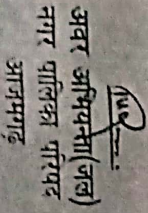 अवर अभियन्ता(जल)
नगर पालिका परिषद
आजमगढ़